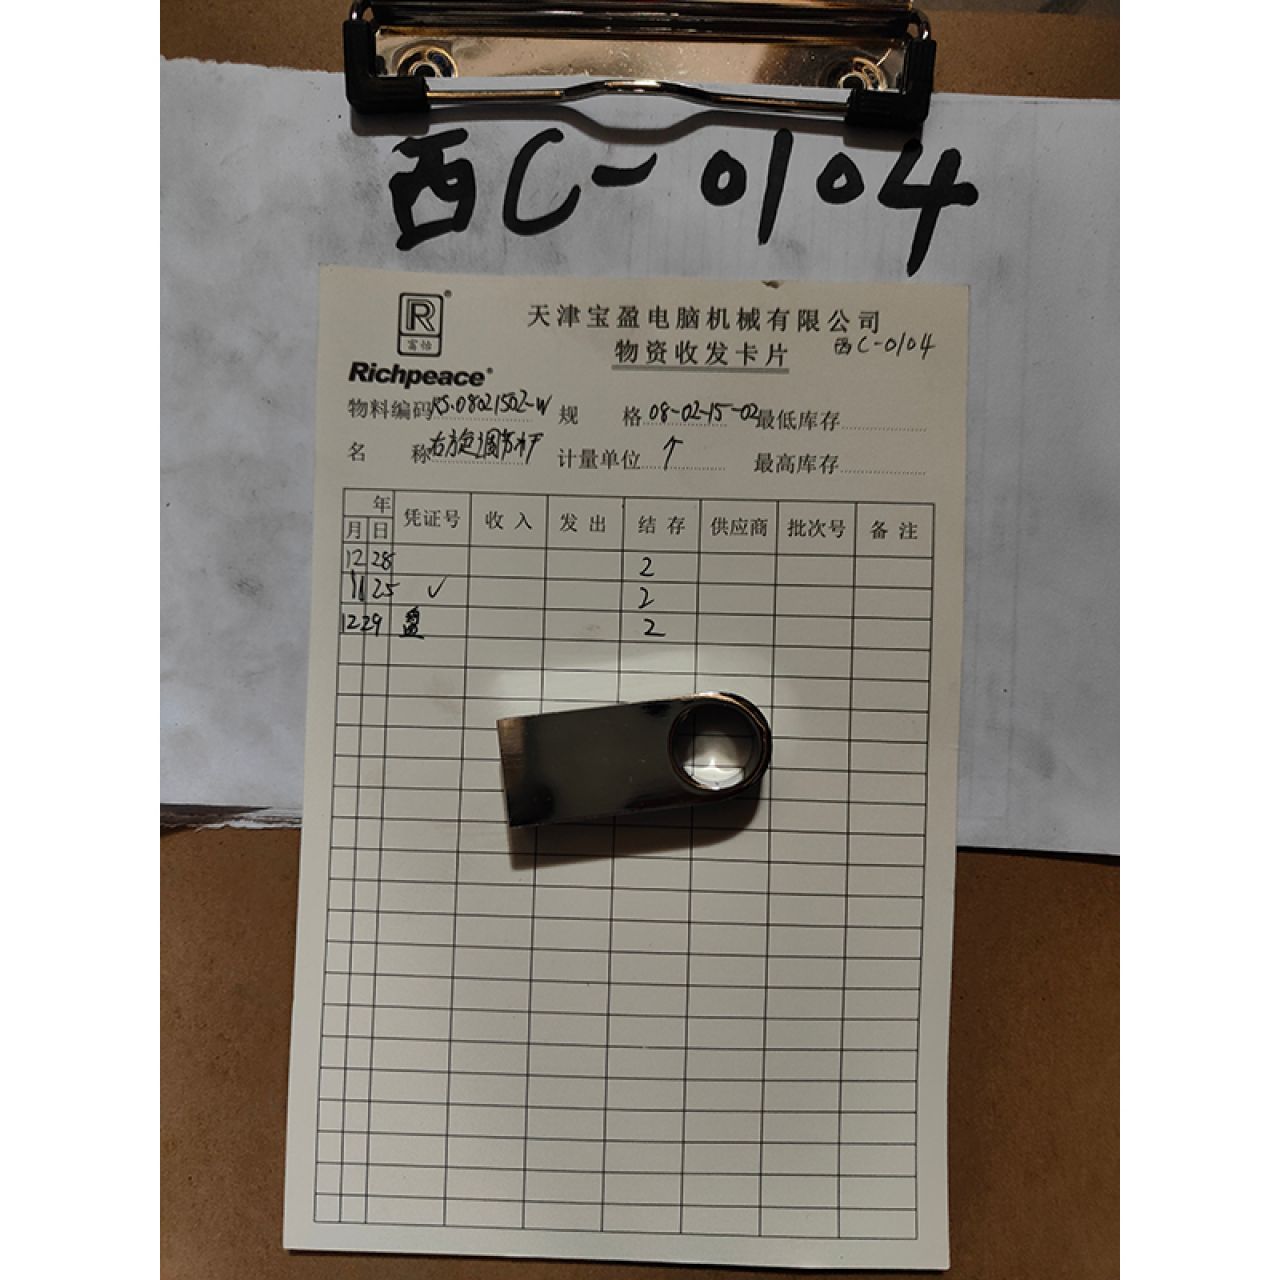 西C-0104
R®
富怡
天津宝盈电脑机械有限公司
物资收发卡片 西C-0104
Richpeace®
物料编码RS.08021502-W 规格08-02-15-02最低库存
名称右旋调节杆 计量单位个 最高库存
年
月 日 凭证号 收入 发出 结存 供应商 批次号 备注
12 28 2
11 25 ✓ 2
12 29 盘 2